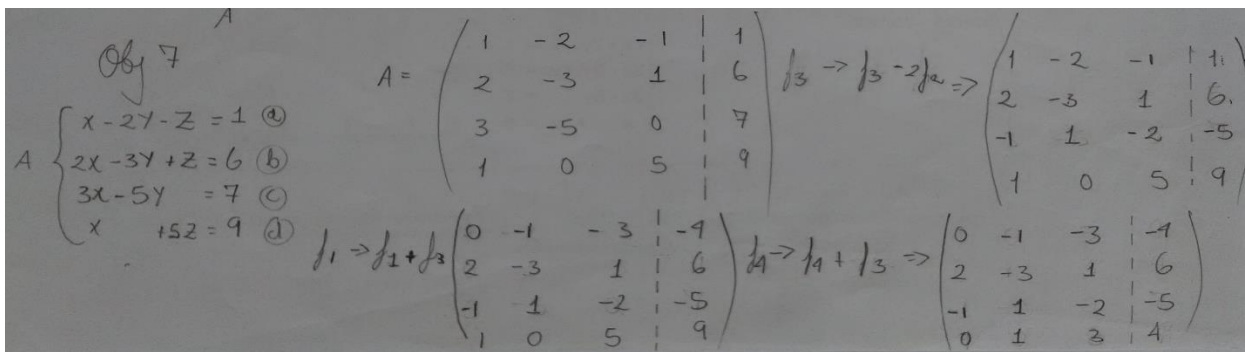 A
Obj 7
A { x - 2y - z = 1 ⓐ
2x - 3y + z = 6 ⓑ
3x - 5y = 7 ⓒ
x + 5z = 9 ⓓ
A = ( 1 -2 -1 | 1
2 -3 1 | 6
3 -5 0 | 7
1 0 5 | 9 )
f3 -> f3 - 2f2 =>
( 1 -2 -1 | 1.
2 -3 1 | 6.
-1 1 -2 | -5
1 0 5 | 9 )
f1 -> f1 + f3
( 0 -1 -3 | -4
2 -3 1 | 6
-1 1 -2 | -5
1 0 5 | 9 )
f4 -> f4 + f3 =>
( 0 -1 -3 | -4
2 -3 1 | 6
-1 1 -2 | -5
0 1 3 | 4 )